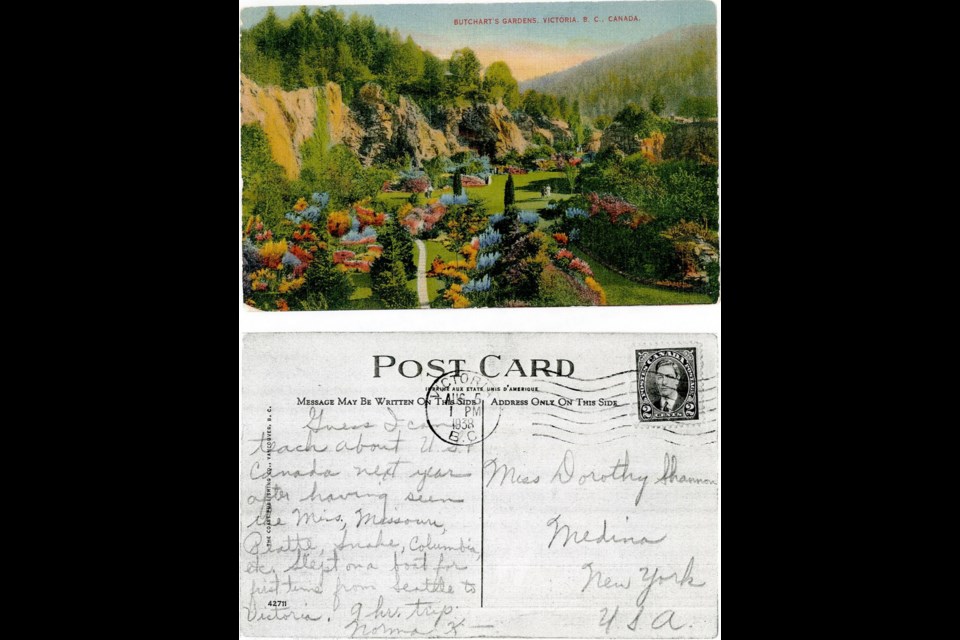 BUTCHART'S GARDENS, VICTORIA, B. C., CANADA.
POST CARD
IMPRIME AUX ETATS UNIS D'AMERIQUE.
MESSAGE MAY BE WRITTEN ON THIS SIDE
ADDRESS ONLY ON THIS SIDE
VICTORIA
AUG 5
1 PM
1938
B.C.
CANADA
POSTES POSTAGE
2 CENTS 2
Guess I can
teach about U.S. &
Canada next year
after having seen
the Miss, Missouri,
Platte, Snake, Columbia,
etc. Slept on a boat for
first time from Seattle to
Victoria. 9 hr. trip.
Norma K
Miss Dorothy Shannon
Medina
New York
U.S.A.
THE COAST PUBLISHING CO., VANCOUVER, B. C.
42711